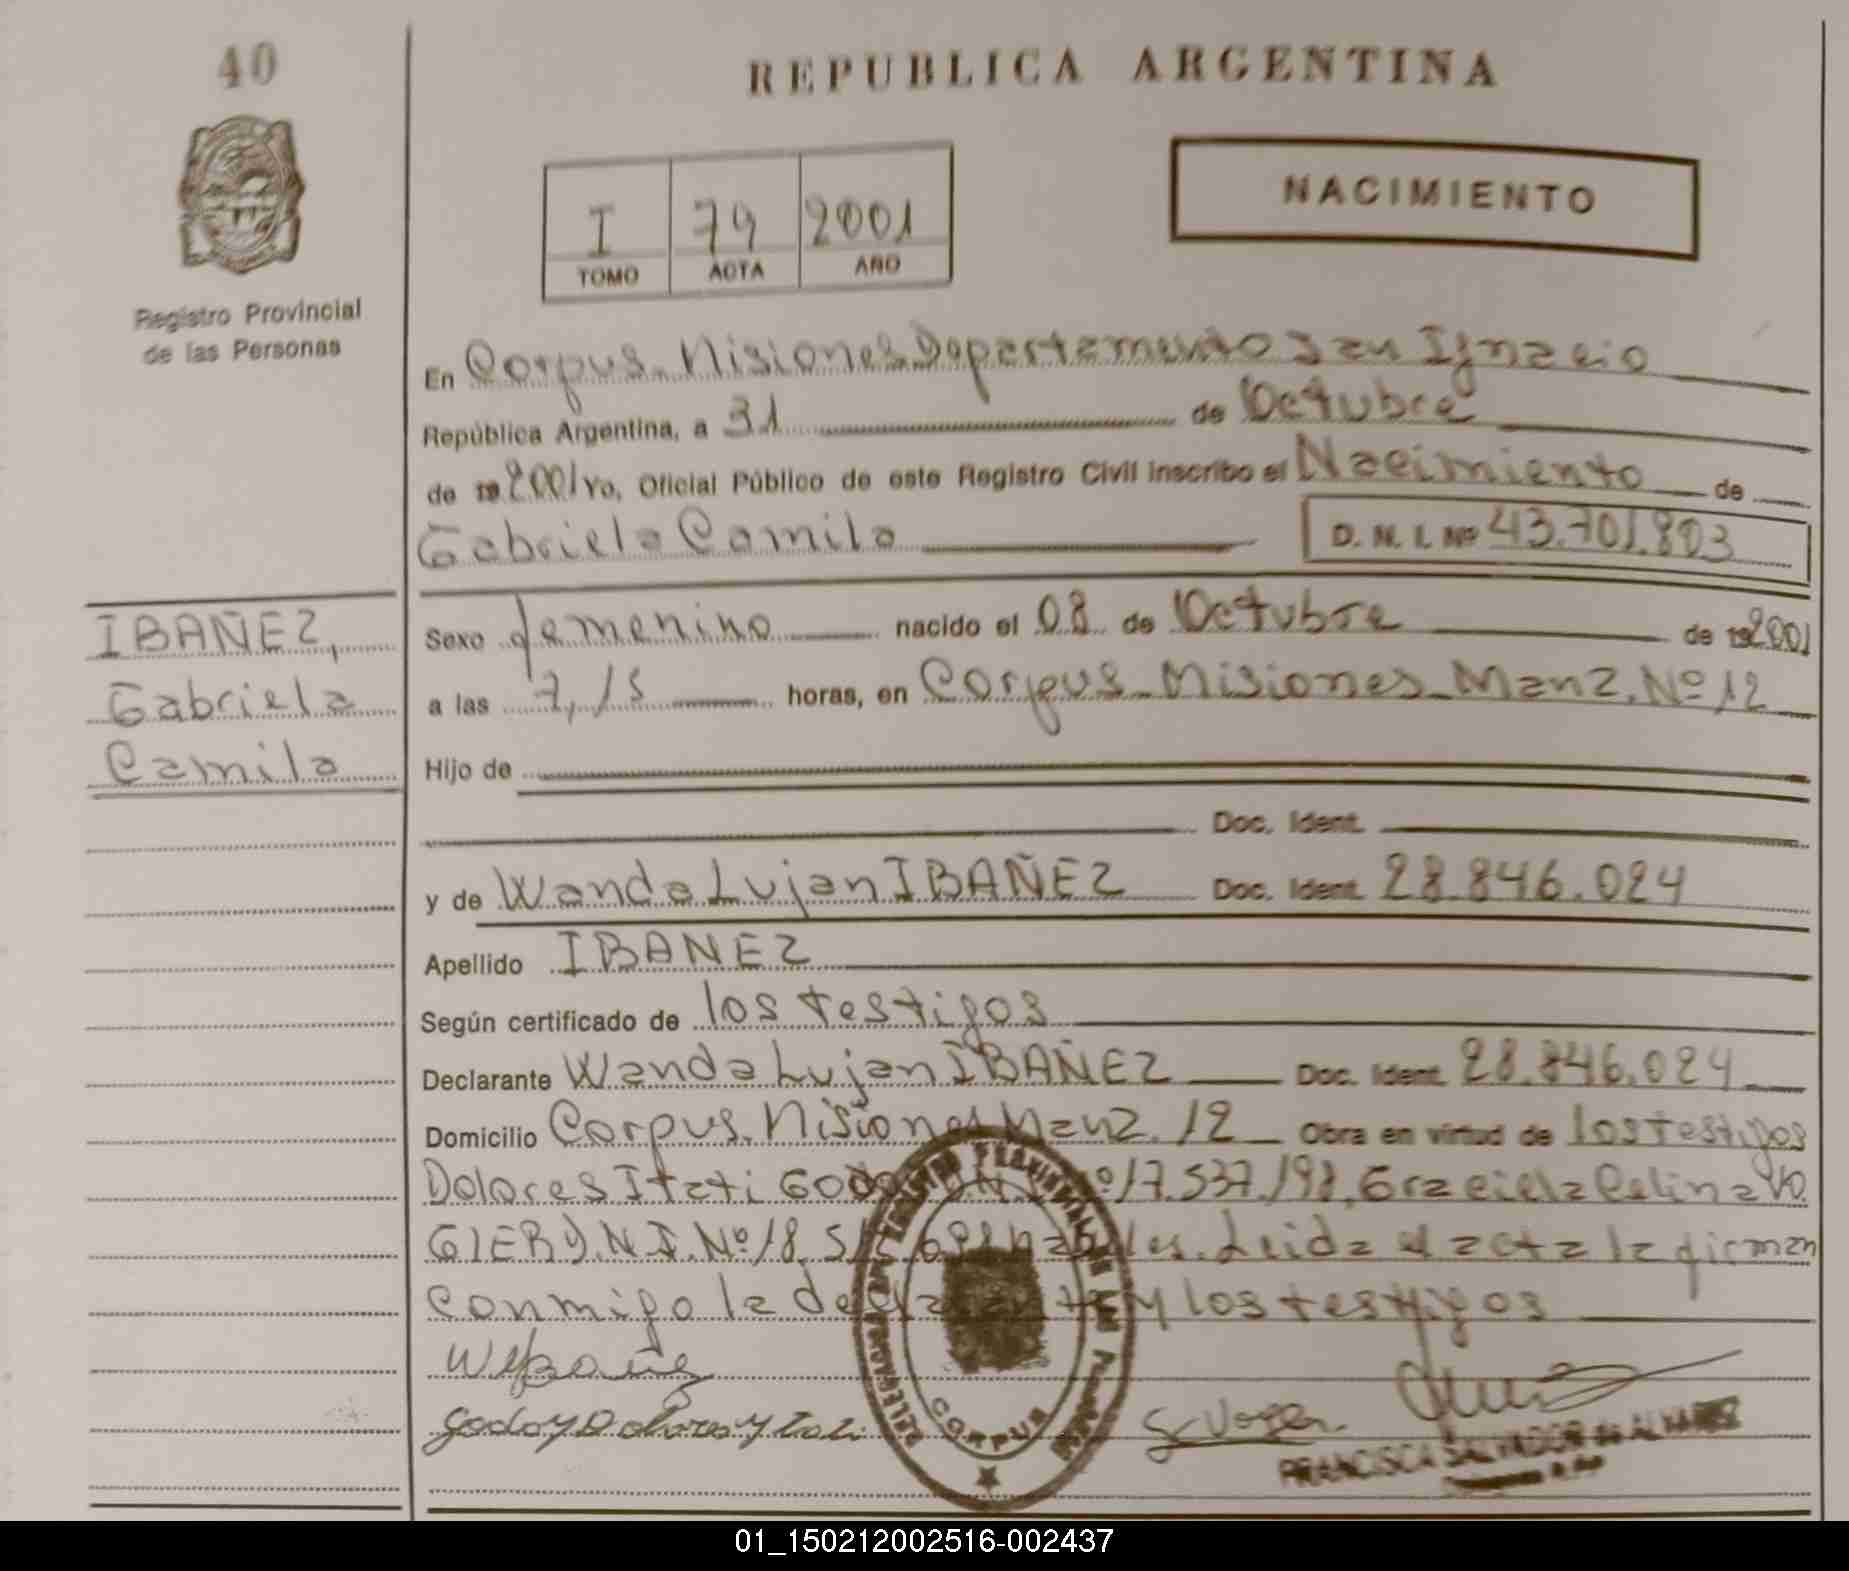 40
REPUBLICA ARGENTINA
Registro Provincial
de las Personas
I 79 2001
TOMO ACTA AÑO
NACIMIENTO
En Corpus Misiones Departamento San Ignacio
República Argentina, a 31 de Octubre
de 19 2001 Yo, Oficial Público de este Registro Civil inscribo el Nacimiento de
Gabriela Camila D. N. I. Nº 43.701.803
IBAÑEZ,
Gabriela
Camila
Sexo femenino nacido el 08 de Octubre de 19 2001
a las 7,15 horas, en Corpus Misiones Manz. Nº 12
Hijo de
Doc. Ident.
y de Wanda Lujan IBAÑEZ Doc. Ident. 28.846.024
Apellido IBAÑEZ
Según certificado de los testigos
Declarante Wanda Lujan IBAÑEZ Doc. Ident. 28.846.024
Domicilio Corpus Misiones Manz. 12 Obra en virtud de los testigos
Dolores Itati Godoy Nº 17.537.198, Graciela Celina VO
GLER D.N.I. Nº 18. Leida el acta la firman
conmigo la declarante y los testigos
W Ibañez
Godoy Dolores Ytati
G. Voger
FRANCISCA SALVADOR de ALVAREZ
REGISTRO PROVINCIAL DE LAS PERSONAS
DELEGACION
CORPUS
01_150212002516-002437